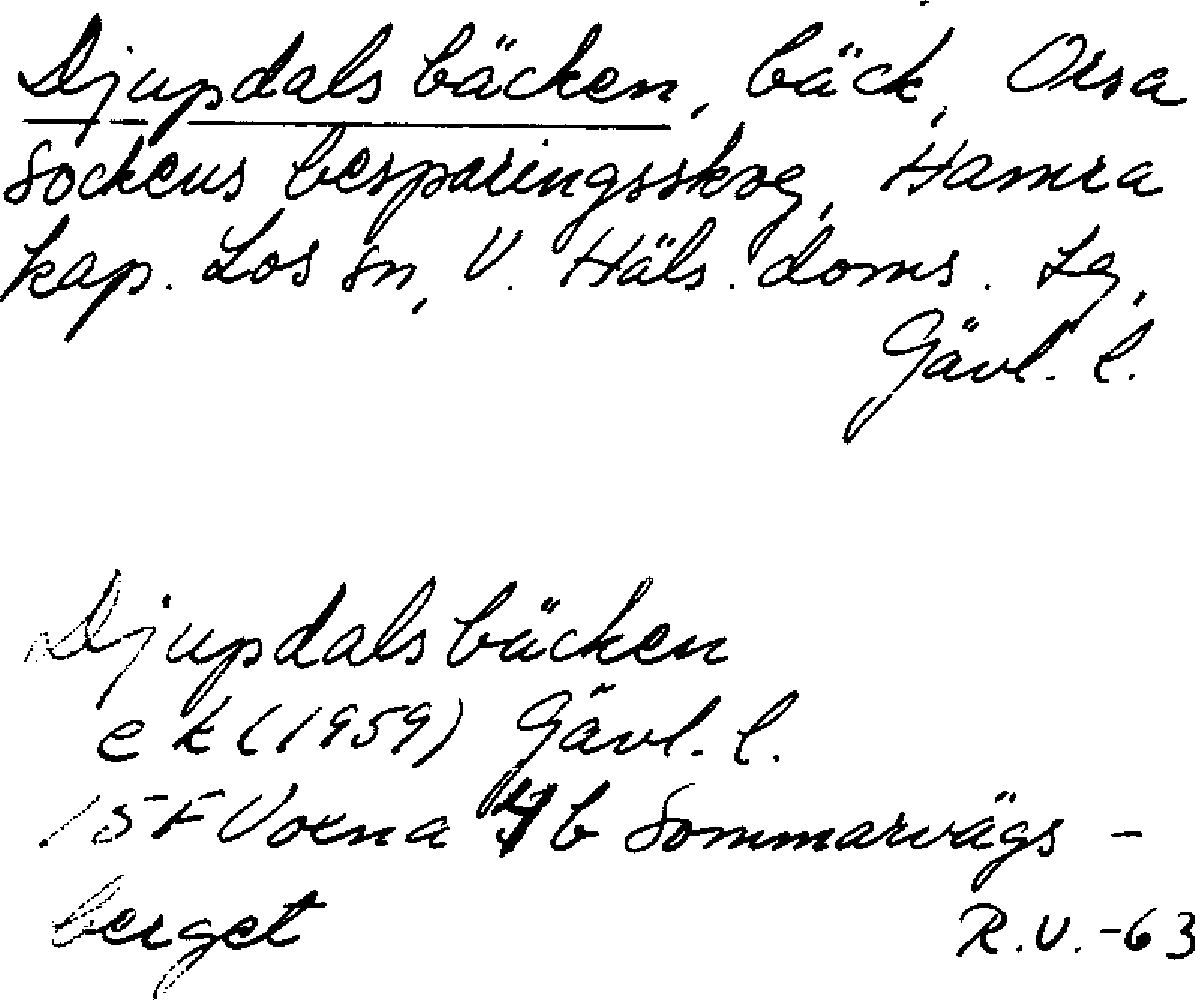 Djupdalsbäcken, bäck, Orsa
sockens besparingsskog, Hamra
kap. Los sn, V. Häls. doms. Lg,
Gävl. l.
Djupdalsbäcken
e k (1959) Gävl. l.
15F Voxna b Sommarvägs-
berget
R.V.-63